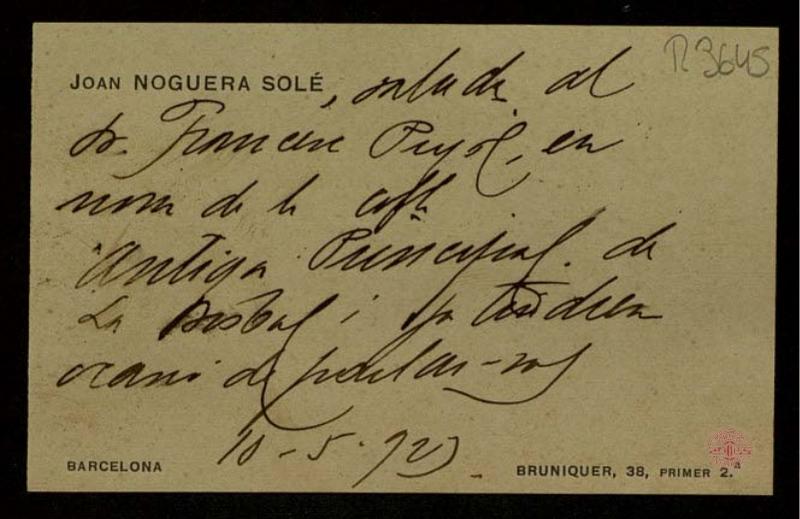 R 3645
JOAN NOGUERA SOLÉ, saluda al
Sr. Francesc Pujol, en
nom de la cobla
Antiga Principal de
La Bisbal i ja tindrem
ocasió de parlar-nos
10-5-923
BARCELONA
BRUNIQUER, 38, PRIMER 2.ª